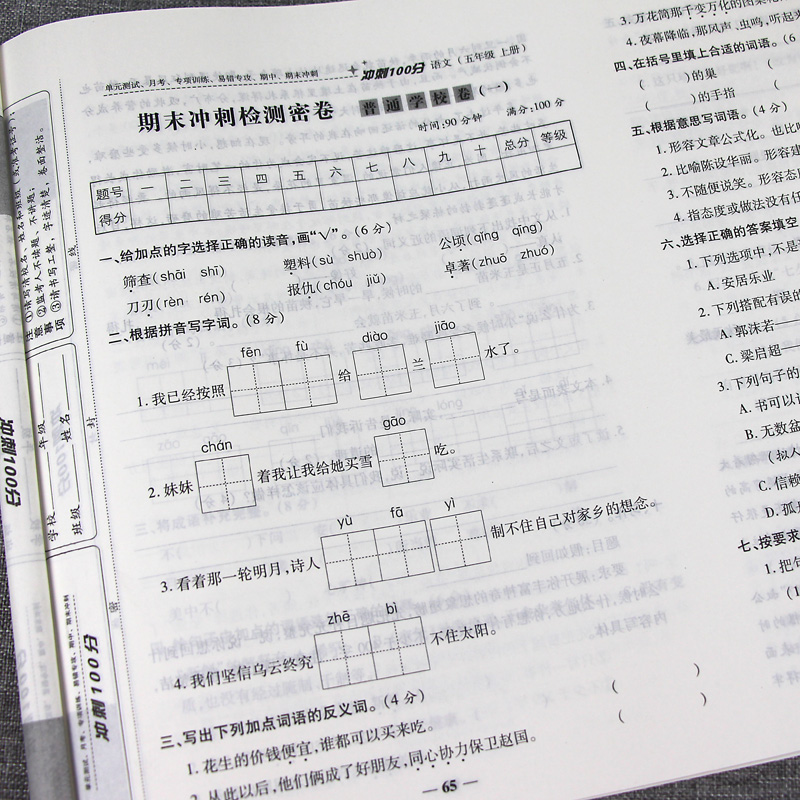 单元测试、月考、专项训练、易错专攻、期中、期末冲刺
冲刺100分 语文(五年级 上册)
期末冲刺检测密卷 普通学校卷(一)
时间:90分钟 满分:100分
题号 一 二 三 四 五 六 七 八 九 十 总分 等级
得分
一、给加点的字选择正确的读音,画“√”。(6分)
筛查(shāi shī) 塑料(sù shuò) 公顷(qīng qǐng)
刀刃(rèn rén) 报仇(chóu jiǔ) 卓著(zhuō zhuó)
二、根据拼音写字词。(8分)
fēn fù diào jiāo
1.我已经按照 给 兰 水了。
chán gāo
2.妹妹 着我让我给她买雪 吃。
yù fā yì
3.看着那一轮明月,诗人 制不住自己对家乡的想念。
zhē bì
4.我们坚信乌云终究 不住太阳。
三、写出下列加点词语的反义词。(4分)
1.花生的价钱便宜,谁都可以买来吃。 ( )
2.从此以后,他们俩成了好朋友,同心协力保卫赵国。 ( )
— 65 —
3.万花筒那千变万化的图案
4.夜幕降临,那风声、虫鸣,听起
四、在括号里填上合适的词语。(6
( )的巢
( )的手指
五、根据意思写词语。(4分)
1.形容文章公式化。也比
2.比喻陈设华丽。形容建
3.不随便说笑。形容态度
4.指态度或做法没有任
六、选择正确的答案填空
1.下列选项中,不是
A.安居乐业
2.下列搭配有误的
A.郭沫若——
C.梁启超——
3.下列句子的
A.书可以
B.无数盆
(叔人
C.信赖
D.孤
七、按要求
1.把句
(1
注意事项
①请写清校名、姓名和班级
②监考人不读题,不讲题;
③请书写工整、字迹清楚、卷面整洁。
学校
年级
班级
姓名
密
封
线
冲刺100分
单元测试、月考、专项训练、易错专攻、期中、期末冲刺
冲刺100分